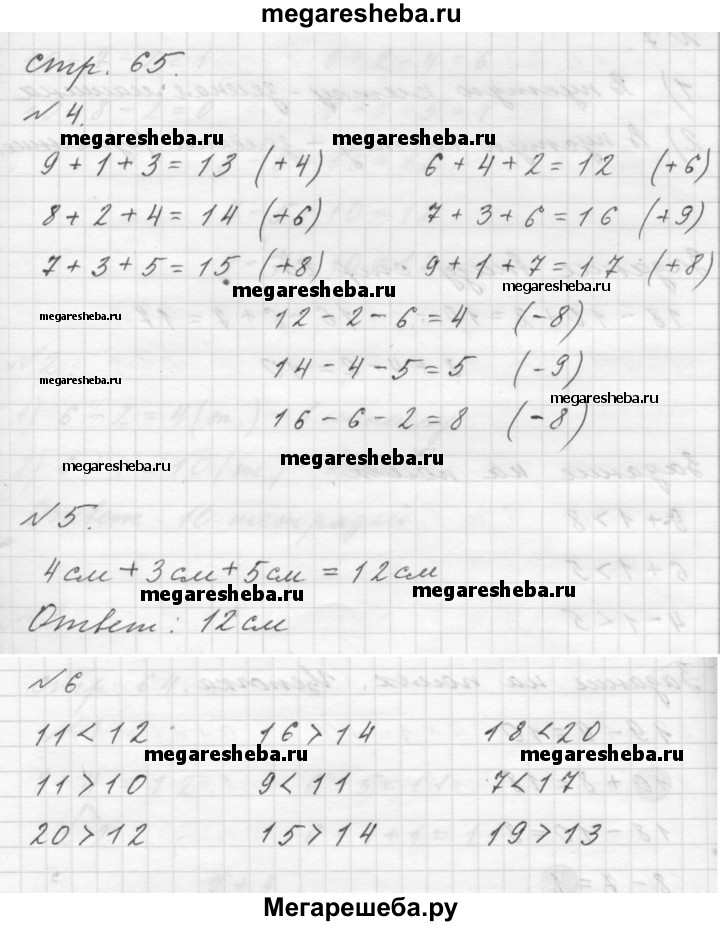 megaresheba.ru
стр. 65.
№ 4.
megaresheba.ru megaresheba.ru
9 + 1 + 3 = 13 (+4) 6 + 4 + 2 = 12 (+6)
8 + 2 + 4 = 14 (+6) 7 + 3 + 6 = 16 (+9)
7 + 3 + 5 = 15 (+8) 9 + 1 + 7 = 17 (+8)
megaresheba.ru megaresheba.ru
megaresheba.ru 12 - 2 - 6 = 4 (-8)
megaresheba.ru 14 - 4 - 5 = 5 (-9)
megaresheba.ru
16 - 6 - 2 = 8 (-8)
megaresheba.ru megaresheba.ru
№ 5.
4 см + 3 см + 5 см = 12 см
megaresheba.ru megaresheba.ru
Ответ: 12 см
№ 6
11 < 12 16 > 14 18 < 20
megaresheba.ru megaresheba.ru
11 > 10 9 < 11 7 < 17
20 > 12 15 > 14 19 > 13
Мегарешеба.ру